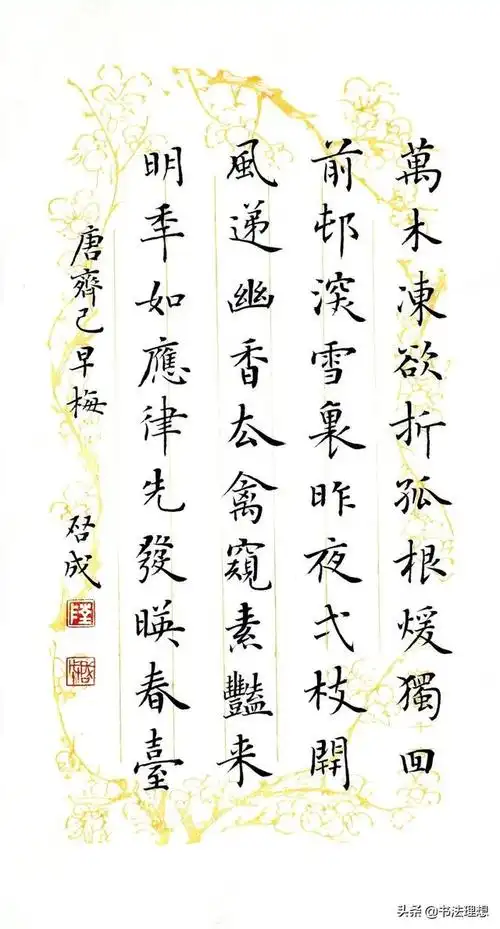 萬木凍欲折孤根煖獨回
前邨深雪裏昨夜弌枝開
風递幽香厺禽窺素豔来
明年如應律先發暎春臺
唐齊己早梅
啓成
头条 @书法理想